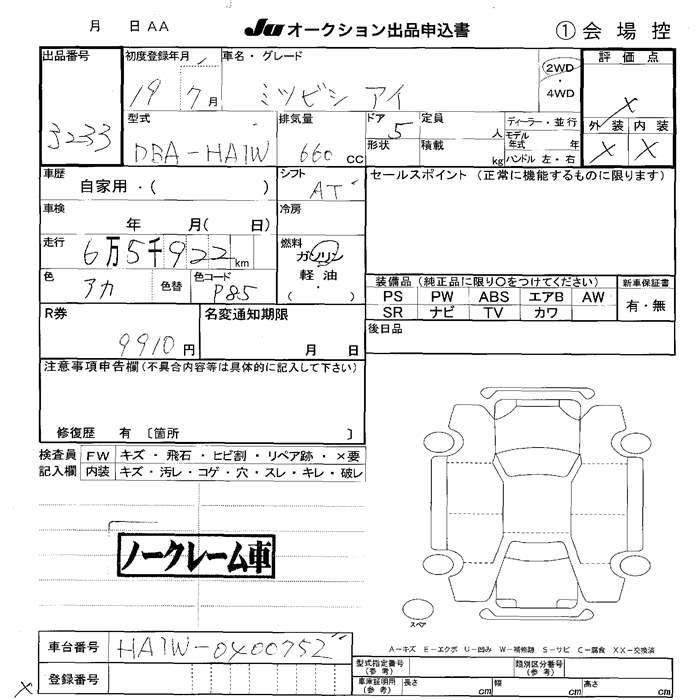 月 日 AA
JU オークション出品申込書 ① 会場控
出品番号 初度登録年月 車名・グレード 評価点
3233 19 7月 ミツビシ アイ 2WD・4WD X
型式 排気量 ドア 定員 ディーラー・並行 外装 内装
DBA-HA1W 660 CC 5 人 モデル年式 年 X X
形状 積載 kg ハンドル 左・右
車歴 シフト セールスポイント (正常に機能するものに限ります)
自家用・( ) AT
車検 冷房
年 月( 日)
走行 燃料
6万5千922km ガソリン
色 色替 色コード 軽油
アカ P85 ( ・ )
装備品 (純正品に限り○をつけてください) 新車保証書
PS PW ABS エアB AW 有・無
SR ナビ TV カワ
R券 名変通知期限 後日品
9910円 月 日
注意事項申告欄(不具合内容等は具体的に記入して下さい)
修復歴 有 〔箇所 〕
検査員 FW キズ・飛石・ヒビ割・リペア跡・×要
記入欄 内装 キズ・汚レ・コゲ・穴・スレ・キレ・破レ
ノークレーム車
スペア
A-キズ E-エクボ U-凹み W-補修跡 S-サビ C-腐食 XX-交換済
車台番号 HA1W-0400752
型式指定番号(参考) 類別区分番号(参考)
登録番号
車庫証明用(参考) 長さ cm 幅 cm 高さ cm
X